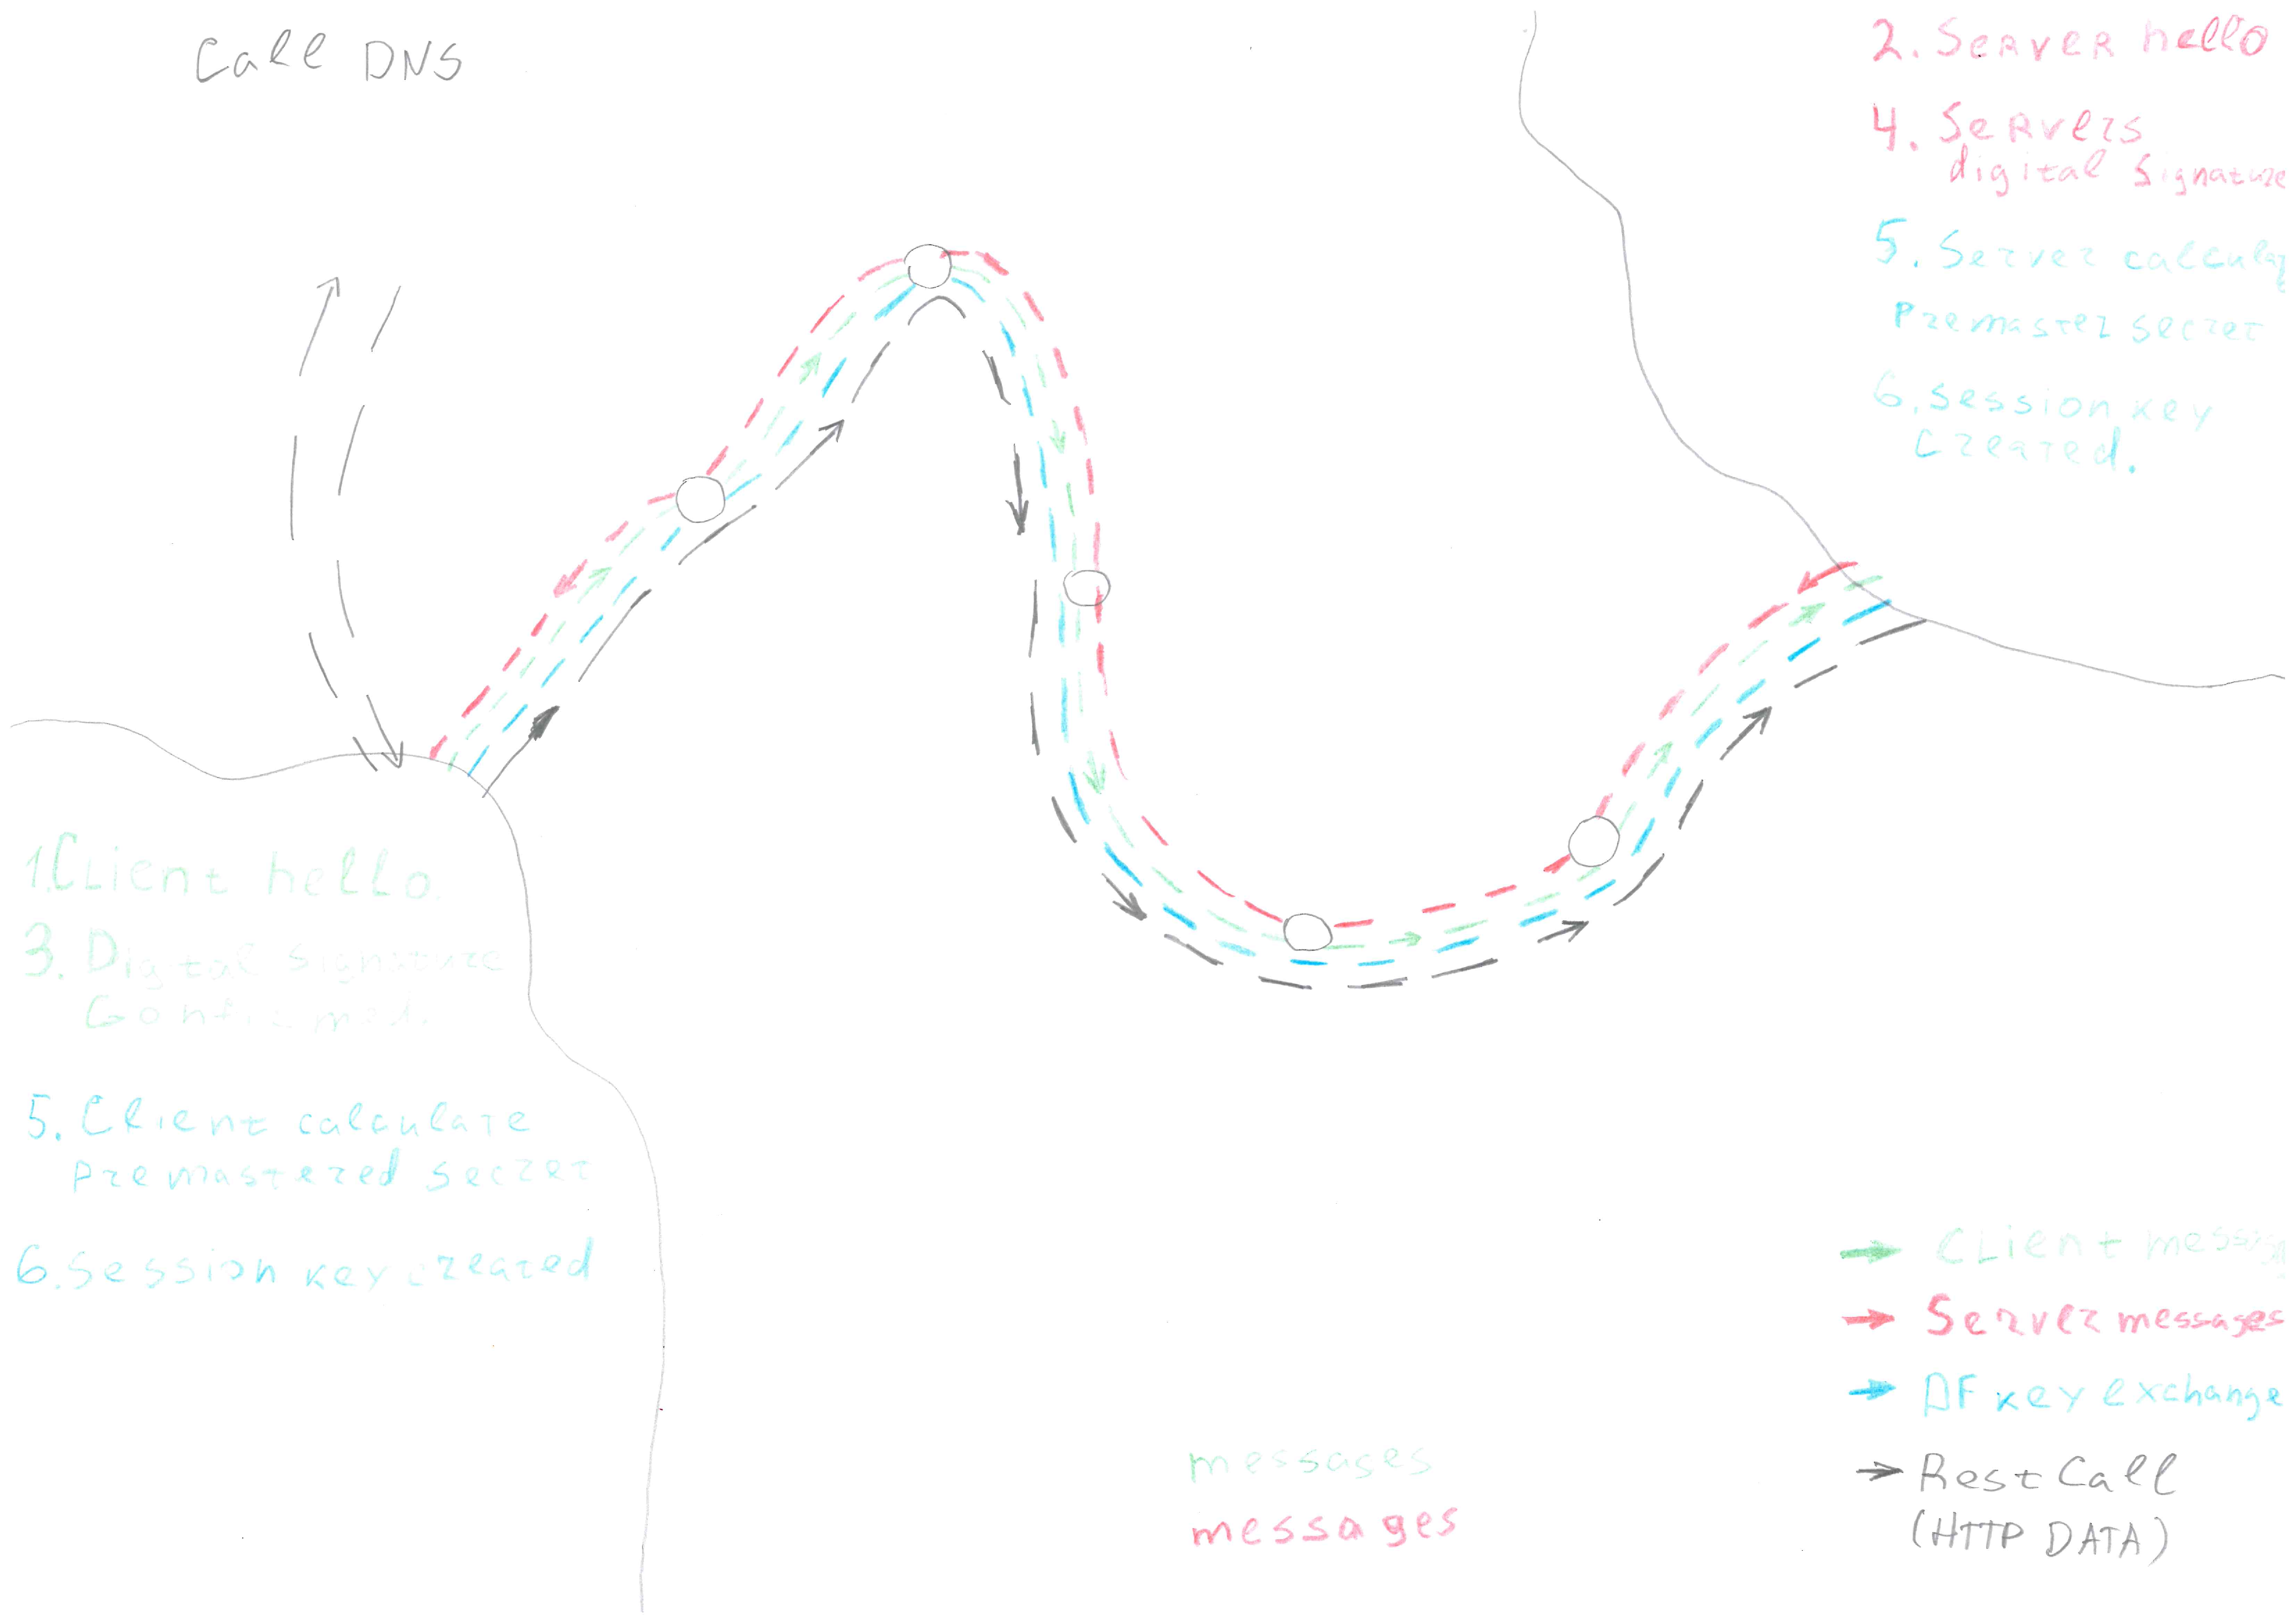 Call DNS
2. Server hello
4. Servers
digital signature
5. Server calcula
premaster secret
6. session key
created.
1. Client hello.
3. Digital signature
Confirmed.
5. Client calculate
premastered secret
6. session key created
Client messag
Server messages
DF key exchange
messages
Rest Call
messages
(HTTP DATA)